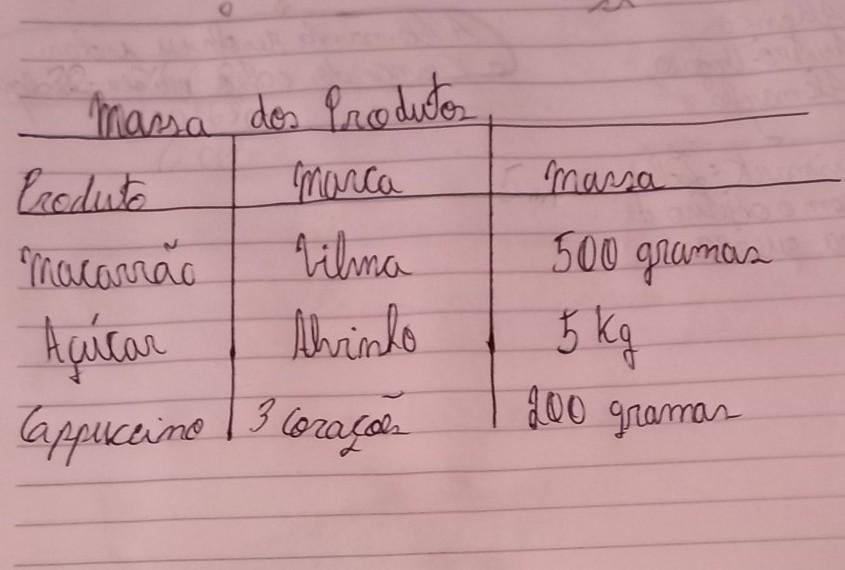 Massa dos Produtos
Produto Marca Massa
Macarrão Vilma 500 gramas
Açúcar Alvinho 5 Kg
Cappuccino 3 Corações 200 gramas